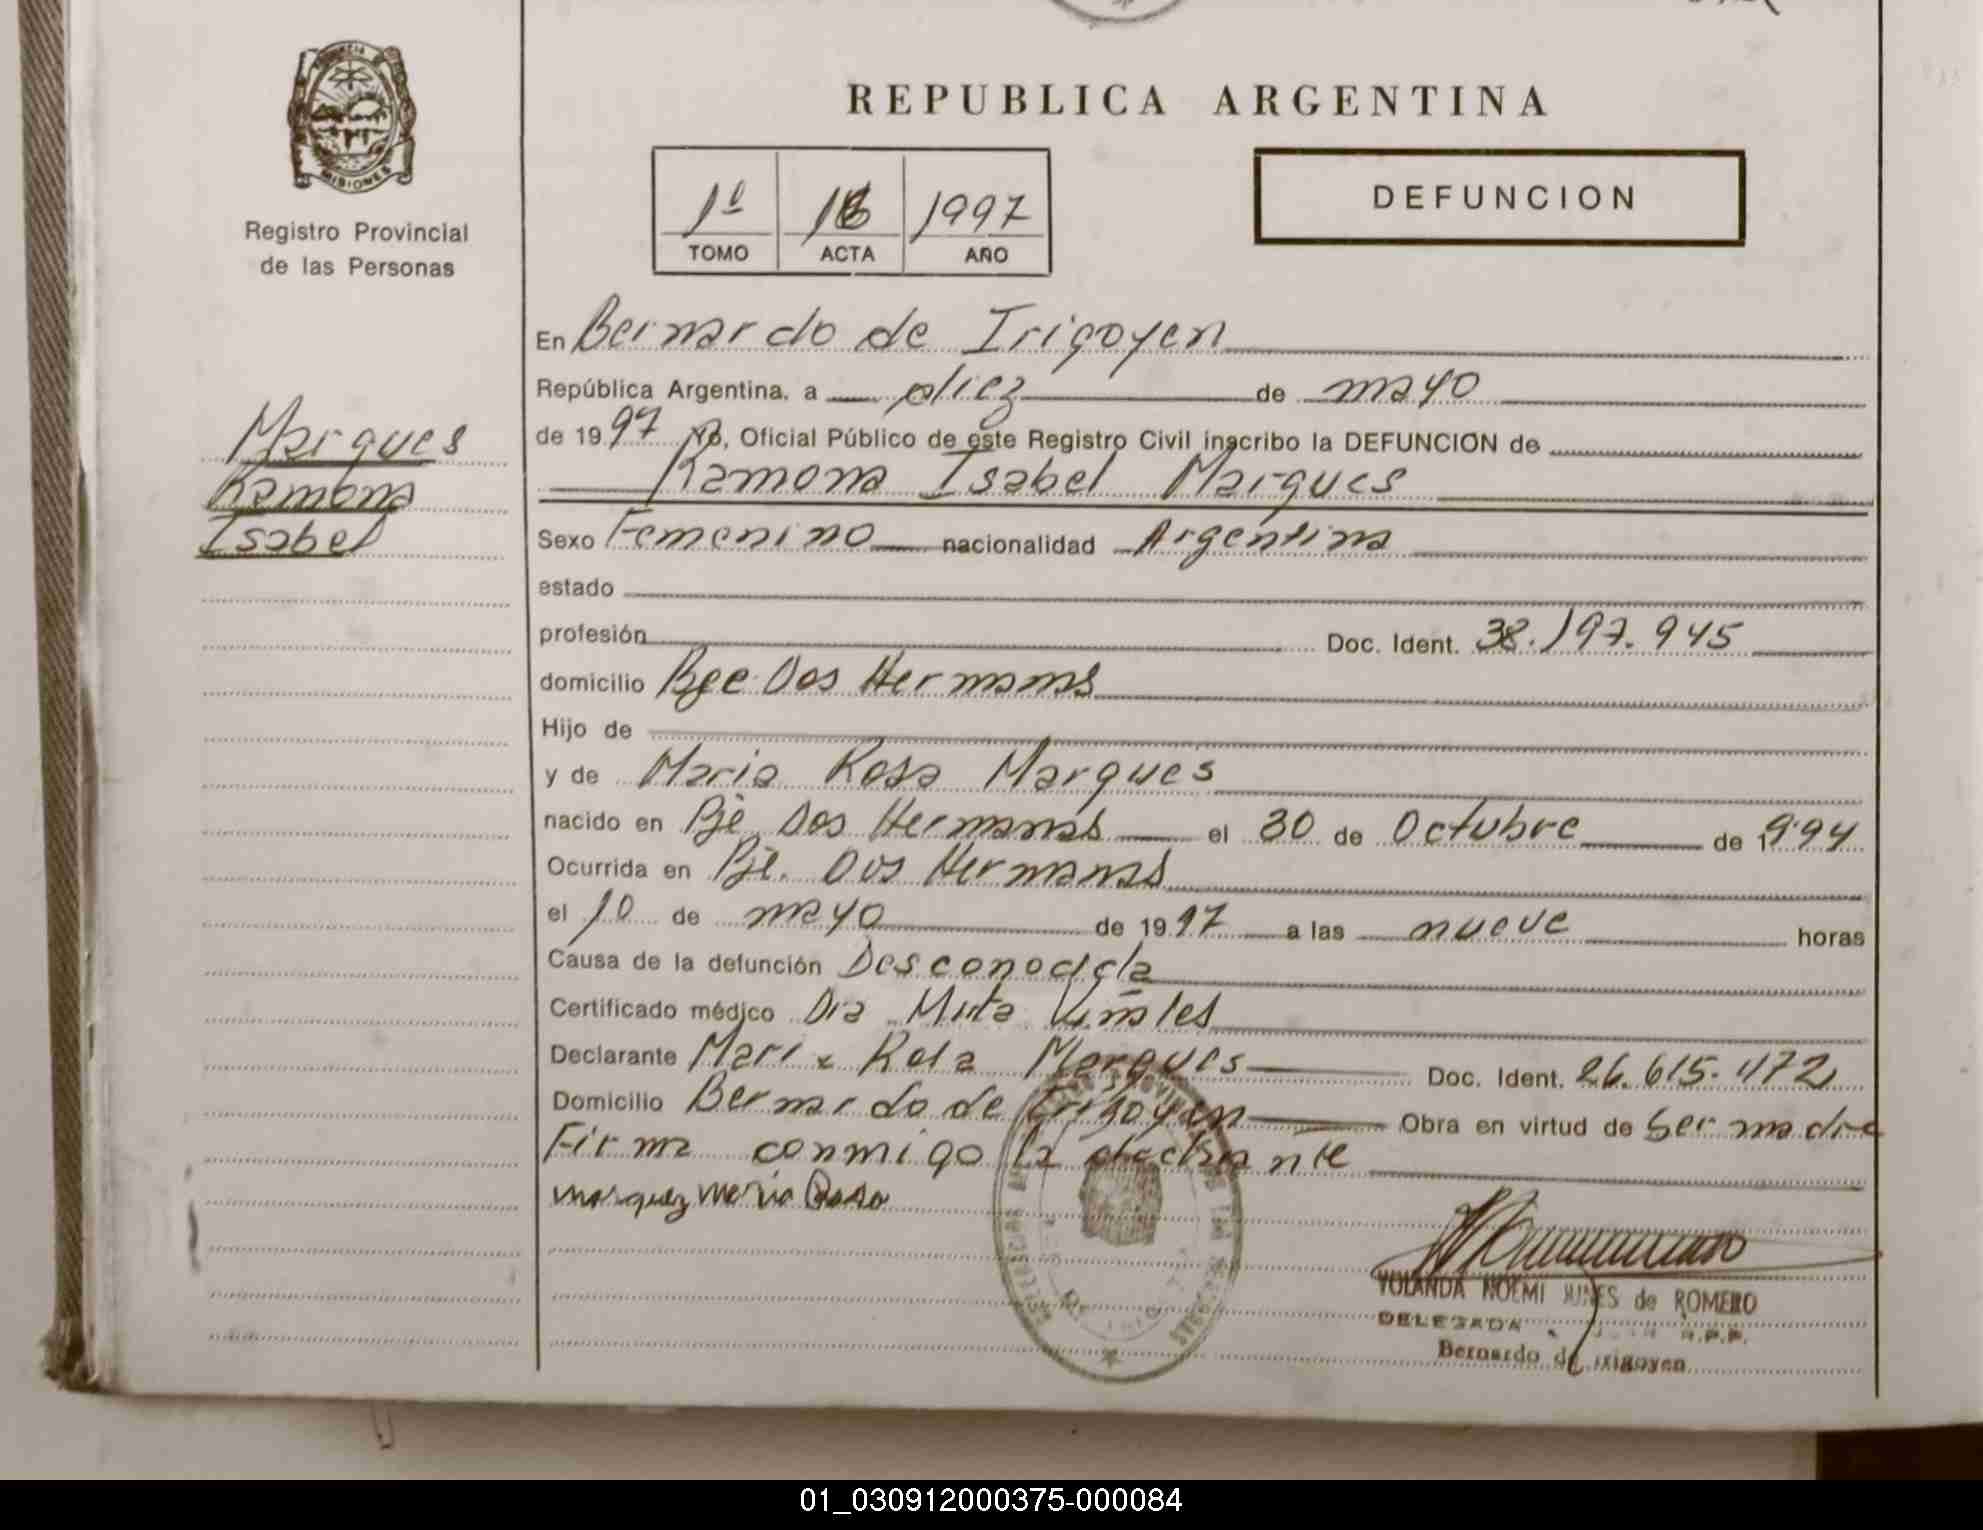 PROVINCIA
MISIONES
Registro Provincial
de las Personas
REPUBLICA ARGENTINA
1º 16 1997
TOMO ACTA AÑO
DEFUNCION
Marques
Ramona
Isabel
En Bernardo de Irigoyen
República Argentina, a diez de mayo
de 1997 Yo, Oficial Público de este Registro Civil inscribo la DEFUNCION de
Ramona Isabel Marques
Sexo Femenino nacionalidad Argentina
estado
profesión Doc. Ident. 38.197.945
domicilio Pje Dos Hermanas
Hijo de
y de Maria Rosa Marques
nacido en Pje Dos Hermanas el 30 de Octubre de 1994
Ocurrida en Pje. Dos Hermanas
el 10 de mayo de 1997 a las nueve horas
Causa de la defunción Desconocida
Certificado médico Dra
Declarante Maria Rosa Marques Doc. Ident. 26.615.472
Domicilio Bernardo de Irigoyen Obra en virtud de Ser madre
Firma conmigo la declarante
Marquez Maria Rosa
YOLANDA NOEMI de ROMERO
DELEGADA R.P.P.
Bernardo de Irigoyen
01_030912000375-000084